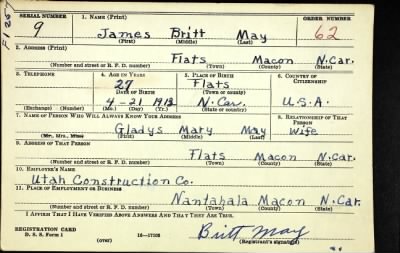 SERIAL NUMBER 1. NAME (Print) ORDER NUMBER
9 James Britt May 62
(First) (Middle) (Last)
2. ADDRESS (Print)
Flats Macon N.Car.
(Number and street or R. F. D. number) (Town) (County) (State)
3. TELEPHONE 4. AGE IN YEARS 5. PLACE OF BIRTH 6. COUNTRY OF CITIZENSHIP
27 Flats
DATE OF BIRTH (Town or county)
4-21 1913 N.Car. U.S.A.
(Exchange) (Number) (Mo.) (Day) (Yr.) (State or country)
7. NAME OF PERSON WHO WILL ALWAYS KNOW YOUR ADDRESS 8. RELATIONSHIP OF THAT PERSON
Gladys Mary May Wife
(Mr., Mrs., Miss) (First) (Middle) (Last)
9. ADDRESS OF THAT PERSON
Flats Macon N.Car.
(Number and street or R. F. D. number) (Town) (County) (State)
10. EMPLOYER'S NAME
Utah Construction Co.
11. PLACE OF EMPLOYMENT OR BUSINESS
Nantahala Macon N.Car.
(Number and street or R. F. D. number) (Town) (County) (State)
I AFFIRM THAT I HAVE VERIFIED ABOVE ANSWERS AND THAT THEY ARE TRUE.
REGISTRATION CARD
D. S. S. Form 1 (over) 16—17105 Britt May
(Registrant's signature)